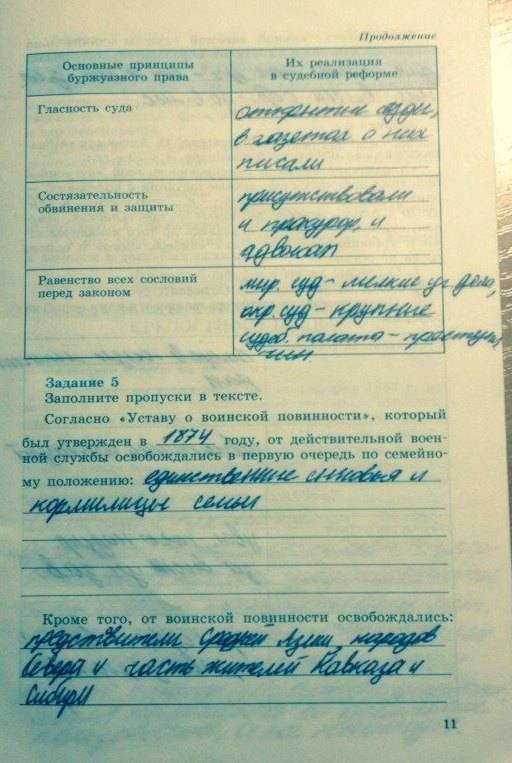 Продолжение
Основные принципы
буржуазного права
Их реализация
в судебной реформе
Гласность суда
открытые суды,
в газетах о них
писали
Состязательность
обвинения и защиты
присутствовали
и прокурор, и
адвокат
Равенство всех сословий
перед законом
мир. суд - мелкие уг. дела,
окр. суд - крупные
судеб. палата -
Задание 5
Заполните пропуски в тексте.
Согласно «Уставу о воинской повинности», который
был утвержден в 1874 году, от действительной воен-
ной службы освобождались в первую очередь по семейно-
му положению: единственные сыновья и
кормилицы семьи
Кроме того, от воинской повинности освобождались:
представители Средней Азии, народов
Севера и часть жителей Кавказа и
Сибири
11